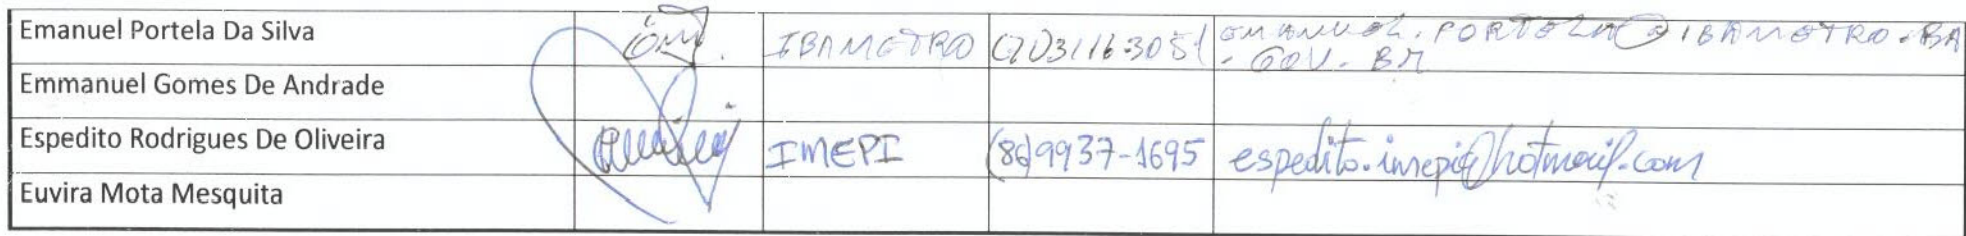 Emanuel Portela Da Silva IBAMETRO (71)3116-3051 EMANUEL.PORTELA@IBAMETRO.BA
.GOV.BR
Emmanuel Gomes De Andrade
Espedito Rodrigues De Oliveira IMEPI (86)9937-1695 espedito.imepi@hotmail.com
Euvira Mota Mesquita